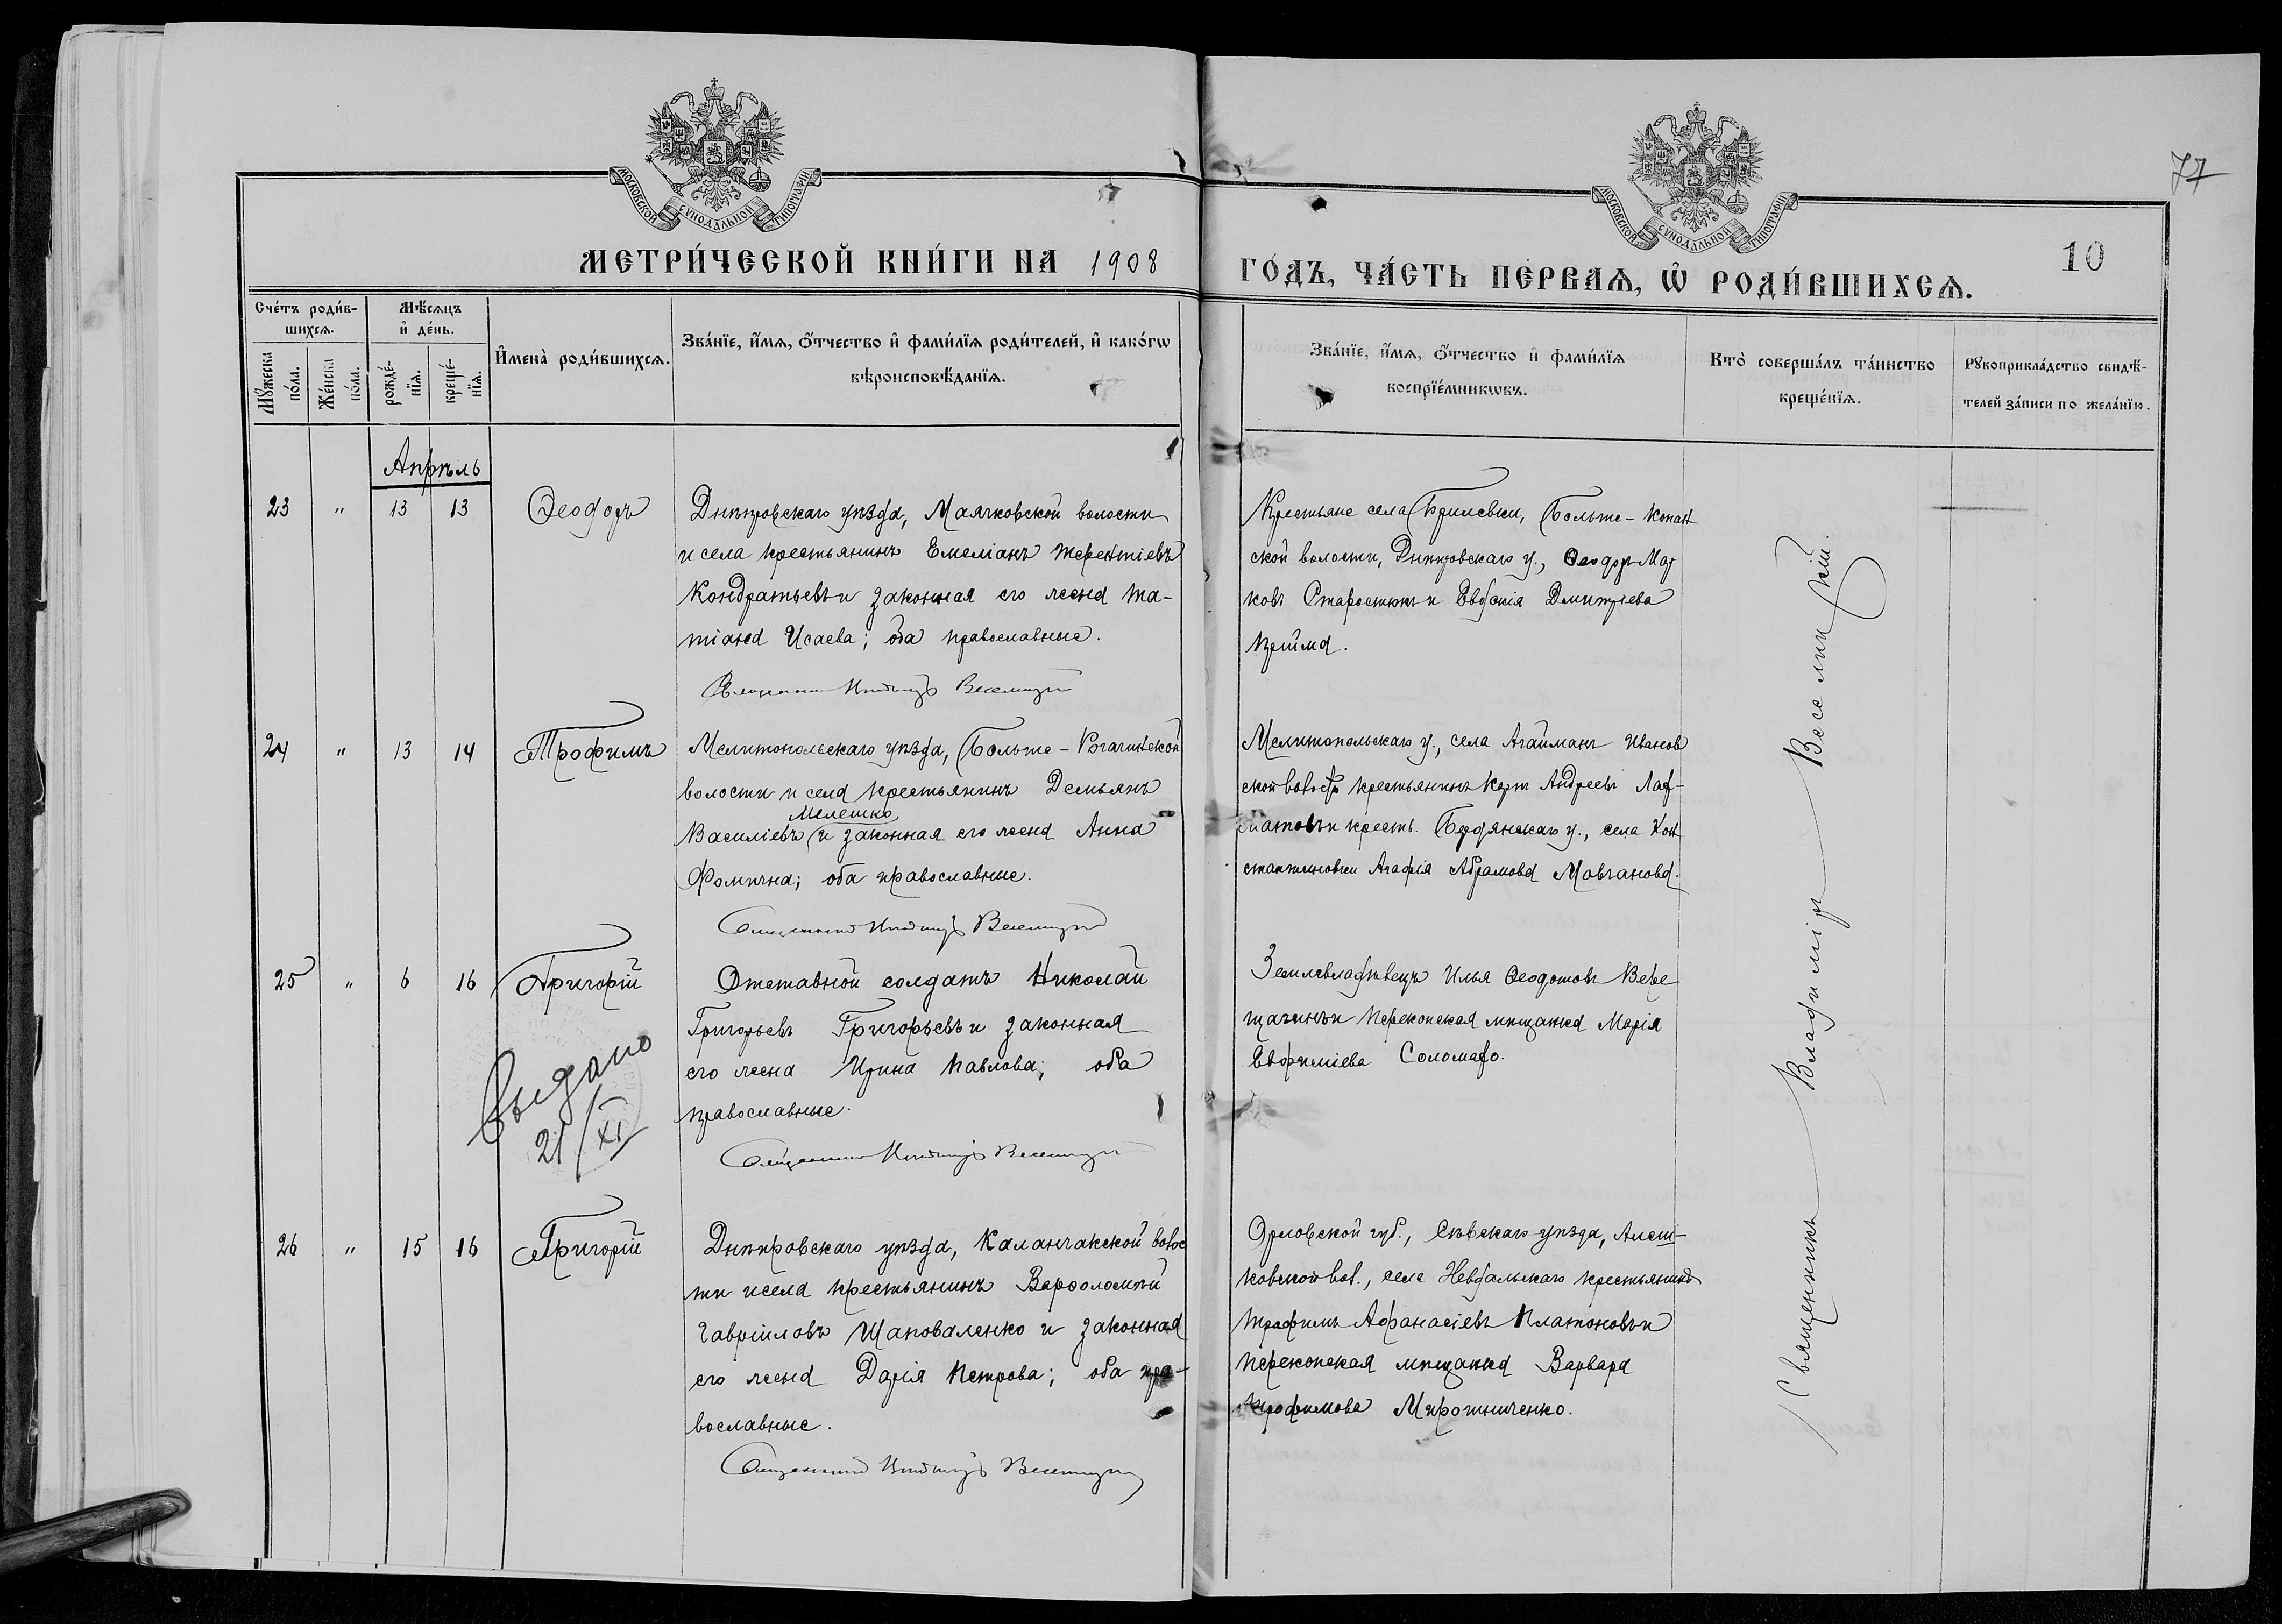 77
МОСКОВСКОЙ СѴНОДАЛЬНОЙ ТИПОГРАФІИ
МОСКОВСКОЙ СѴНОДАЛЬНОЙ ТИПОГРАФІИ
МЕТРИ́ЧЕСКОЙ КНИ́ГИ НА 1908
ГО́ДЪ, ЧА́СТЬ ПЕ́РВАѦ, Ѡ РОДИ́ВШИХСѦ.
10
Сче́тъ роди́в-
шихсѧ.
Мѣ́сѧцъ
и҆ де́нь.
Мꙋжеска
по́ла.
Же́нска
по́ла.
рожде́-
нїѧ.
креще́-
нїѧ.
И҆мена̀ роди́вшихсѧ.
Зва́нїе, и҆́мѧ, ѻ҆́тчество и҆ фами́лїѧ роди́телей, и҆ како́гѡ
вѣроисповѣ́данїѧ.
Зва́нїе, и҆́мѧ, ѻ҆́тчество и҆ фами́лїѧ
воспрїе́мникѡвъ.
Кто̀ соверша́лъ та́инство
креще́нїѧ.
Рꙋкоприкла́дство свидѣ́-
телей за́писи по жела́нїю.
Апрѣль
23 " 13 13 Ѳеодоръ
Днѣпровскаго уѣзда, Маячковской волости
и села крестьянинъ Емеліанъ Терентіевъ
Кондратьевъ и законная его жена Та-
тіана Исаева; оба православные.
Священникъ Владиміръ Веселицкій
Крестьяне села Брилевки, Больше-Копан
ской волости, Днѣпровскаго у., Ѳеодор Мар
ковъ Старостюкъ и Евдокія Дмитріева
Крийма.
24 " 13 14 Трофимъ
Мелитопольскаго уѣзда, Больше-Рогачикской
волости и села крестьянинъ Демьянъ
Мелешко
Василіевъ и законная его жена Анна
Фомична; оба православные.
Священникъ Владиміръ Веселицкій
Мелитопольскаго у., села Агайманъ Иванов
ской волости крестьянинъ Андреевъ
и кресть. Бердянскаго у., села Кон
стантиновки Агафія Абрамова Мовчанова.
25 " 6 16 Григорій
Отставной солдатъ Николай
Григорьевъ Григорьевъ и законная
его жена Ирина Павлова; оба
православные.
Священникъ Владиміръ Веселицкій
Землевладѣлецъ Илья Ѳеодотовъ Вере
щагинъ и Перекопская мѣщанка Марія
Евфиміева Соломахо.
Выдано
21/XI
26 " 15 16 Григорій
Днѣпровскаго уѣзда, Каланчакской волос
ти и села крестьянинъ Варѳоломей
Гавріиловъ Шаповаленко и законная
его жена Дарія Петрова; оба пра-
вославные.
Священникъ Владиміръ Веселицкій
Орловской губ., Сѣвскаго уѣзда, Алеш-
ковской вол., села Невдальскаго крестьянинъ
Трофимъ Афанасіевъ Платоновъ и
Перекопская мѣщанка Варвара
Трофимова Мирошниченко.
Священникъ Владиміръ Веселицкій.